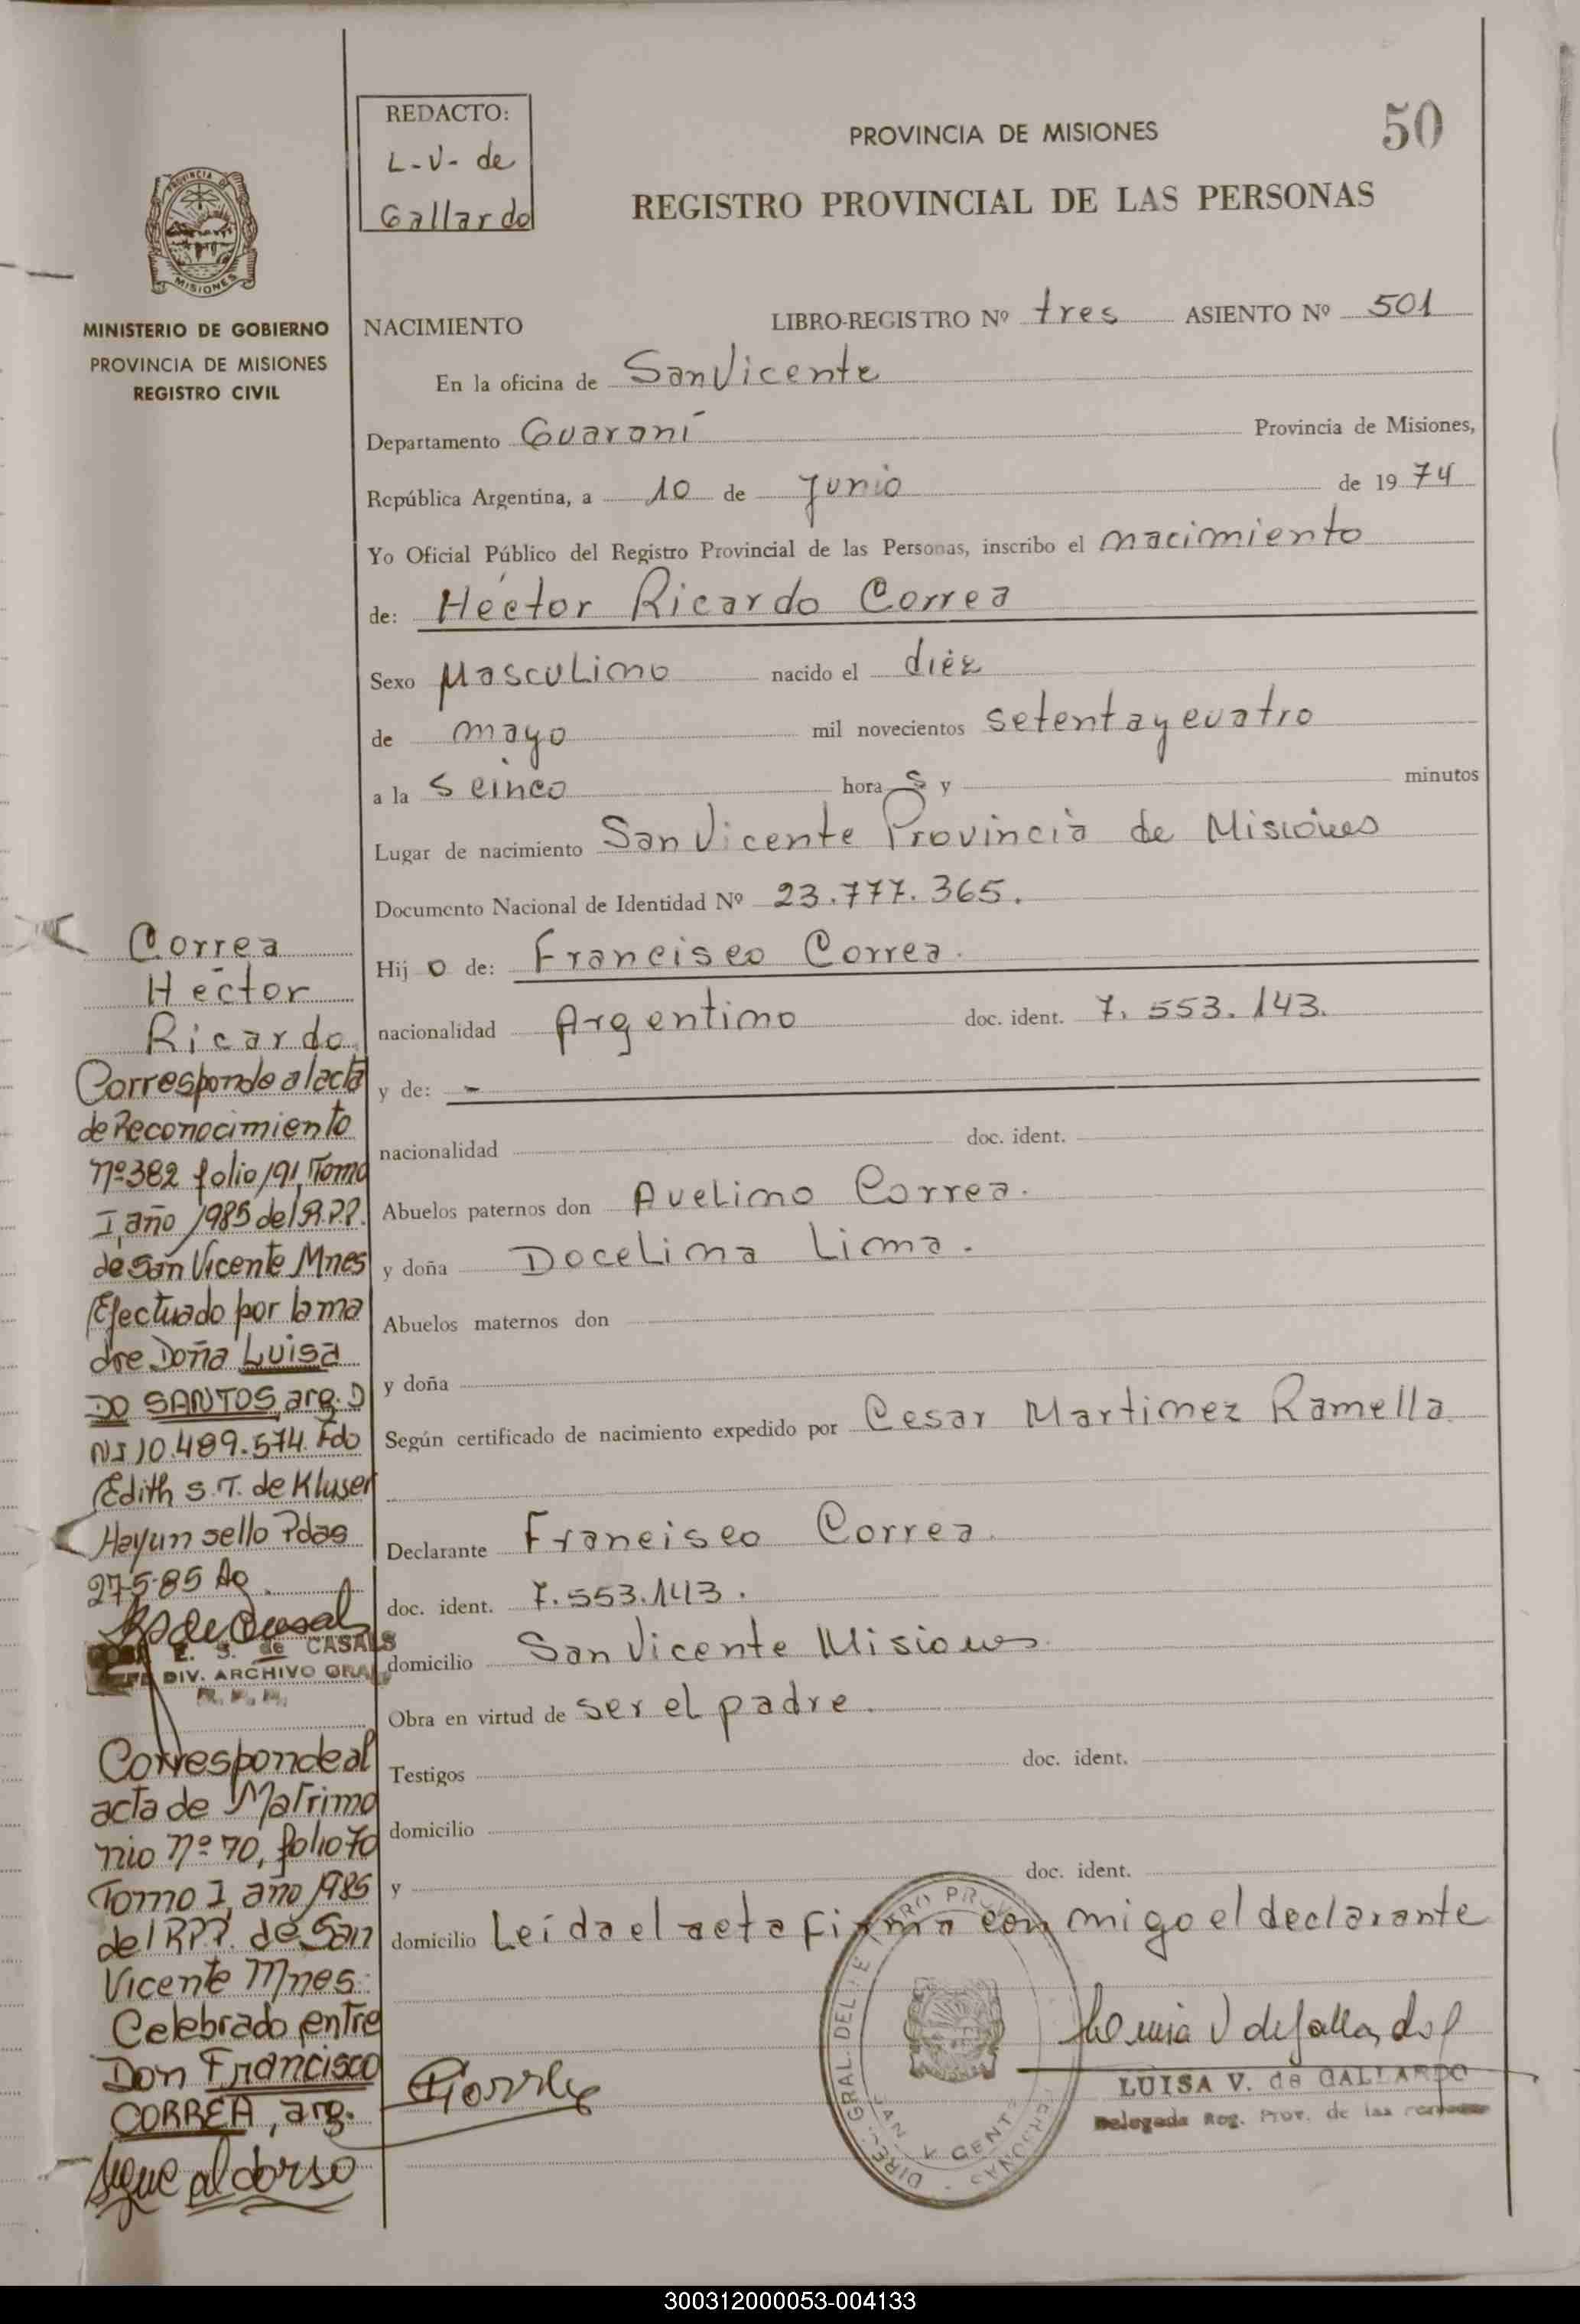 REDACTO:
L-V- de
Gallardo
PROVINCIA DE MISIONES
50
REGISTRO PROVINCIAL DE LAS PERSONAS
PROVINCIA DE
MISIONES
MINISTERIO DE GOBIERNO
PROVINCIA DE MISIONES
REGISTRO CIVIL
NACIMIENTO LIBRO-REGISTRO Nº tres ASIENTO Nº 501
En la oficina de San Vicente
Departamento Guaraní Provincia de Misiones,
República Argentina, a 10 de Junio de 1974
Yo Oficial Público del Registro Provincial de las Personas, inscribo el nacimiento
de: Héctor Ricardo Correa
Sexo Masculino nacido el diez
de mayo mil novecientos setenta y cuatro
a las cinco horas y minutos
Lugar de nacimiento San Vicente Provincia de Misiones
Documento Nacional de Identidad Nº 23.777.365.
Hijo de: Francisco Correa.
nacionalidad Argentino doc. ident. 7.553.143.
y de: -
nacionalidad doc. ident.
Abuelos paternos don Avelino Correa.
y doña Docelina Lima.
Abuelos maternos don
y doña
Según certificado de nacimiento expedido por Cesar Martinez Ramella
Declarante Francisco Correa.
doc. ident. 7.553.143.
domicilio San Vicente Misiones
Obra en virtud de ser el padre.
Testigos doc. ident.
domicilio
y doc. ident.
domicilio Leída el acta firma conmigo el declarante
LUISA V. de GALLARDO
Delegada Reg. Prov. de las
Correa
Héctor
Ricardo
Corresponde al acta
de Reconocimiento
Nº 382 folio 191, Tomo
I, año 1985 del R.P.P.
de San Vicente Mnes
Efectuado por la ma
dre Doña Luisa
DO SANTOS, arg. D
NI 10.489.574. Fdo
Edith S.T. de Kluser
Hay un sello Pdas
27-5-85
E. S. de CASALS
DIV. ARCHIVO GRAL
R.P.P.
Corresponde al
acta de Matrimo
nio Nº 70, folio 70
Tomo I, año 1985
del RPP. de San
Vicente Mnes.
Celebrado entre
Don Francisco
CORREA, arg.
Sigue al dorso
300312000053-004133